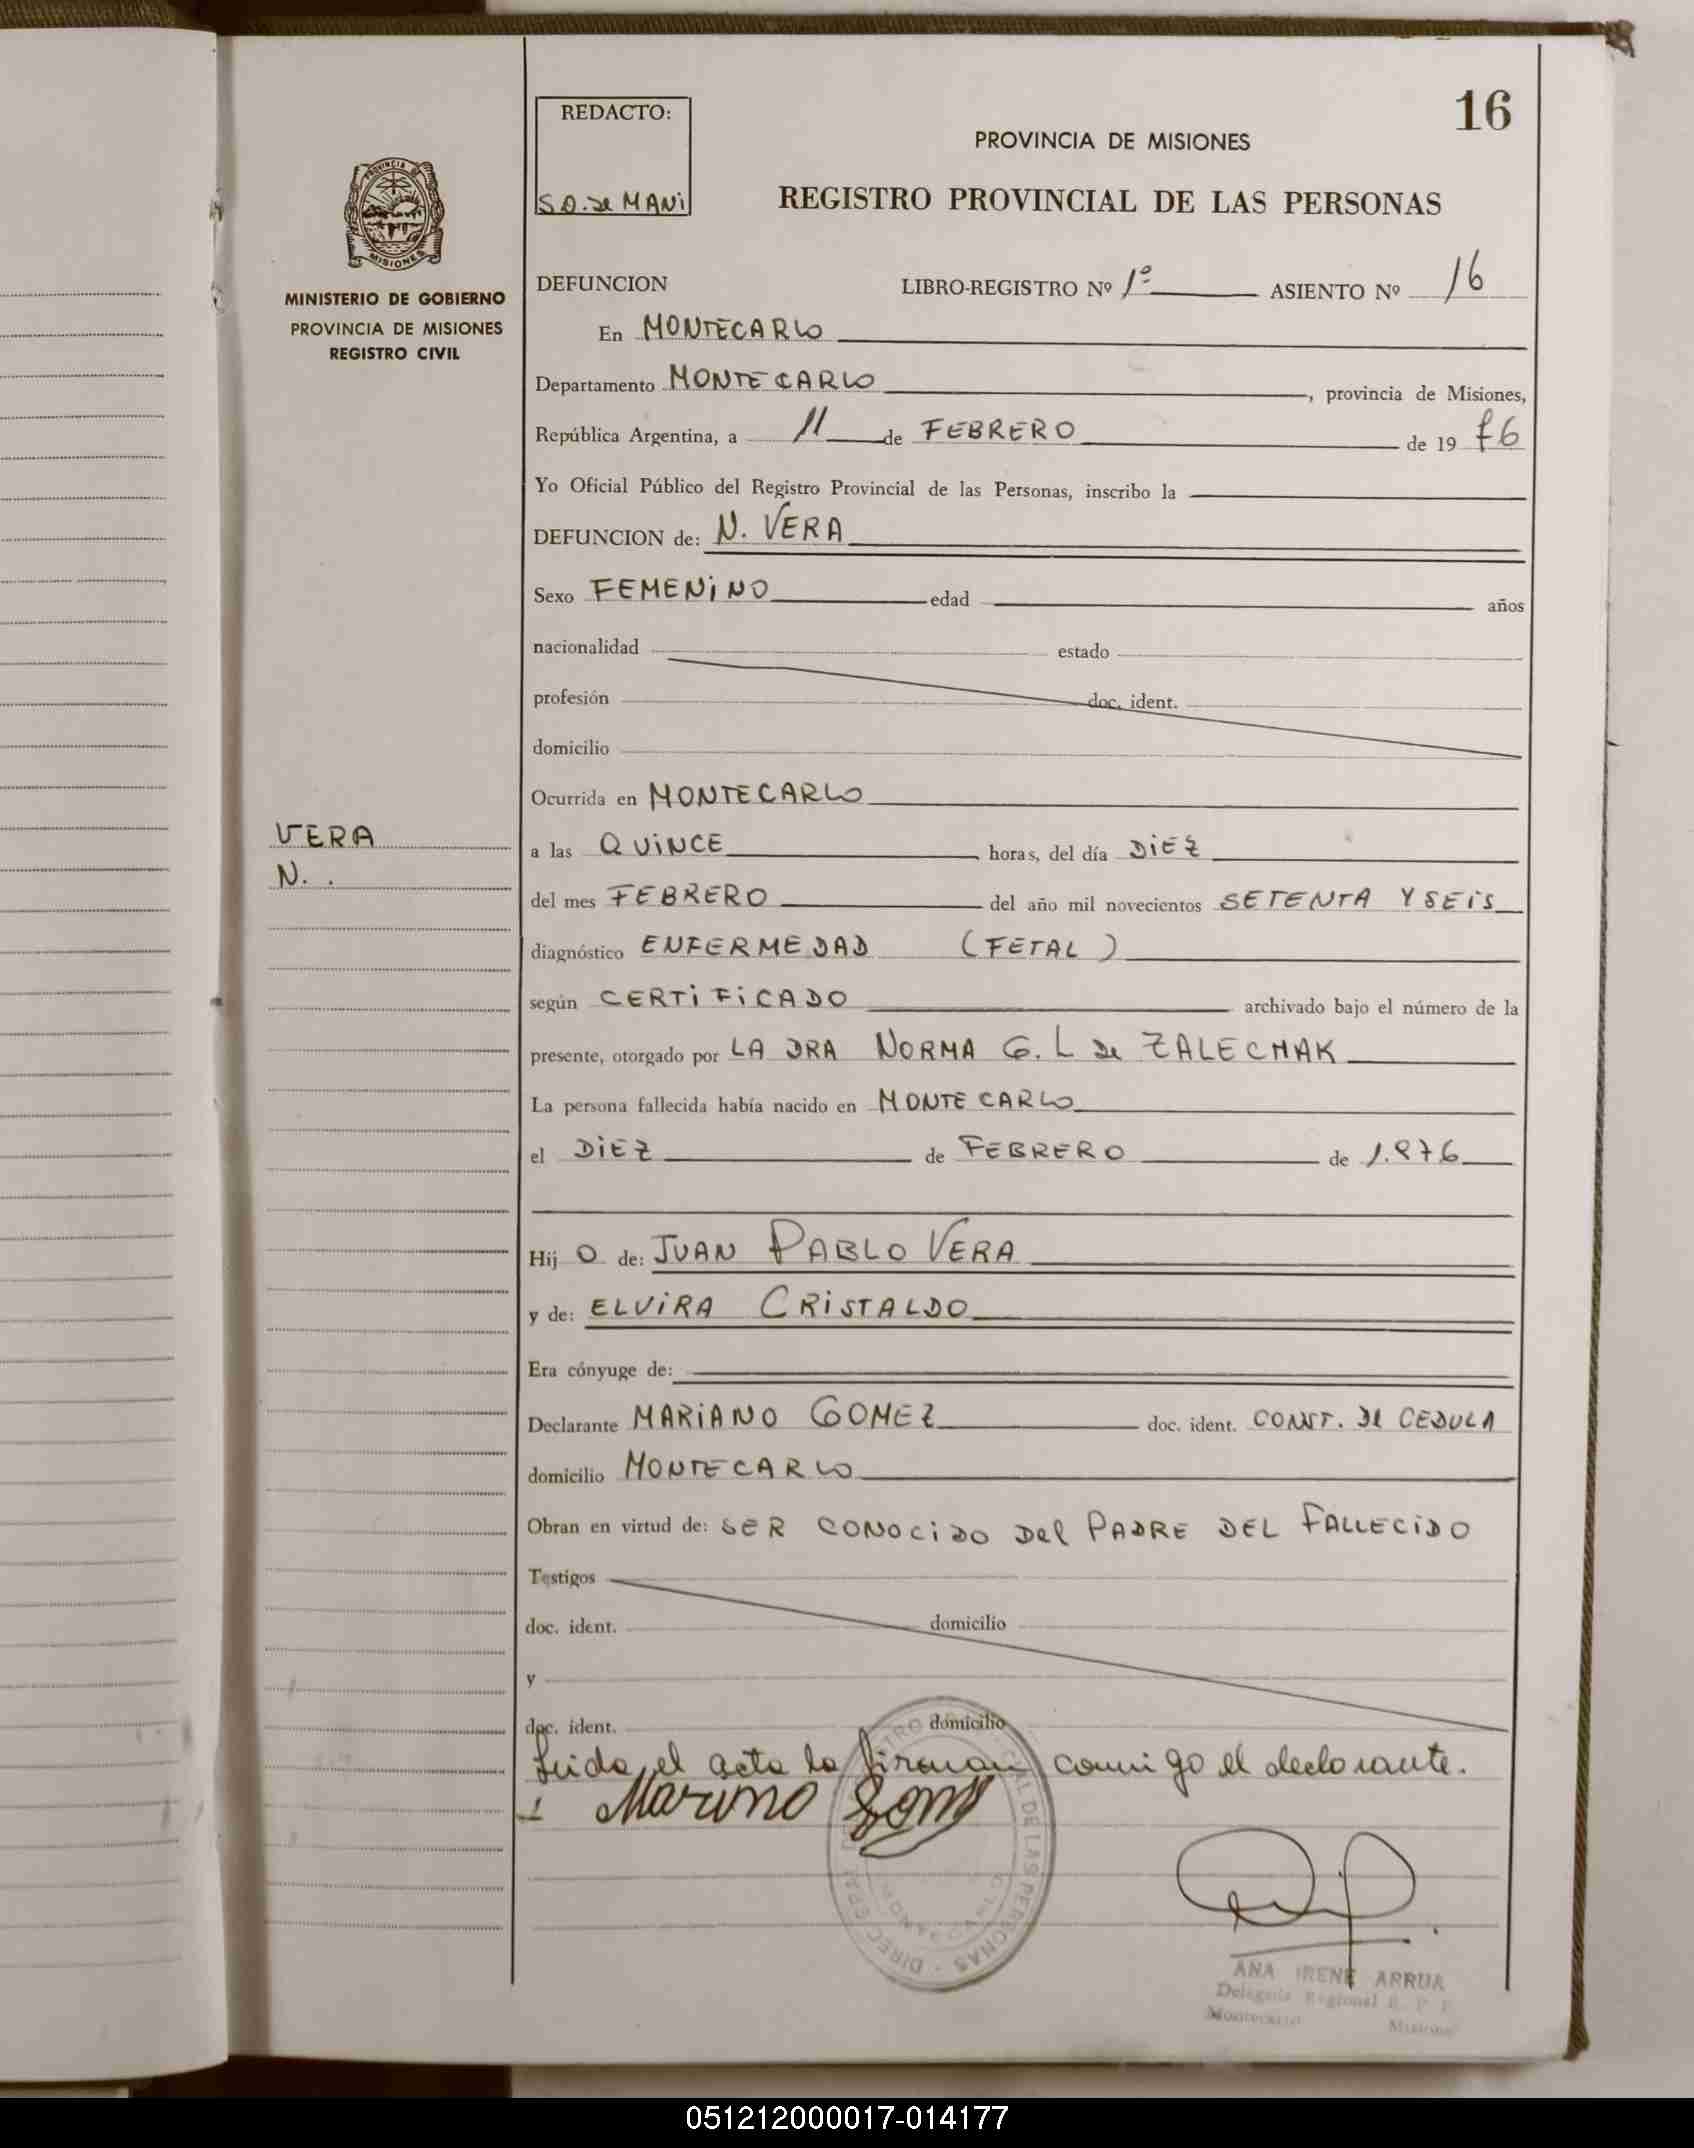 REDACTO:
S.O. de MANi
16
PROVINCIA DE MISIONES
REGISTRO PROVINCIAL DE LAS PERSONAS
PROVINCIA DE
MISIONES
MINISTERIO DE GOBIERNO
PROVINCIA DE MISIONES
REGISTRO CIVIL
DEFUNCION LIBRO-REGISTRO Nº 1º ASIENTO Nº 16
En MONTECARLO
Departamento MONTECARLO, provincia de Misiones,
República Argentina, a 11 de FEBRERO de 19 76
Yo Oficial Público del Registro Provincial de las Personas, inscribo la
DEFUNCION de: N. VERA
Sexo FEMENiNO edad años
nacionalidad estado
profesión doc. ident.
domicilio
Ocurrida en MONTECARLO
VERA
N. .
a las QUiNCE horas, del día DiEZ
del mes FEBRERO del año mil novecientos SETENTA Y SEiS
diagnóstico ENFERMEDAD (FETAL)
según CERTiFiCADO archivado bajo el número de la
presente, otorgado por LA DRA NORMA G. L de ZALECHAK
La persona fallecida había nacido en MONTECARLO
el DiEZ de FEBRERO de 1.976
Hij O de: JUAN PABLO VERA
y de: ELViRA CRiSTALDO
Era cónyuge de:
Declarante MARiANO GOMEZ doc. ident. CONST. De CEDULA
domicilio MONTECARLO
Obran en virtud de: SER CONOCiDO Del PADRE DEL FALLECiDO
Testigos
doc. ident. domicilio
y
doc. ident. domicilio
Leida el acta la firman comigo el declarante.
Mariano Gomez
DE LAS PERSONAS
MONTECARLO
ANA IRENE ARRUA
Delegada Regional R. P. P.
Montecarlo Misiones
051212000017-014177